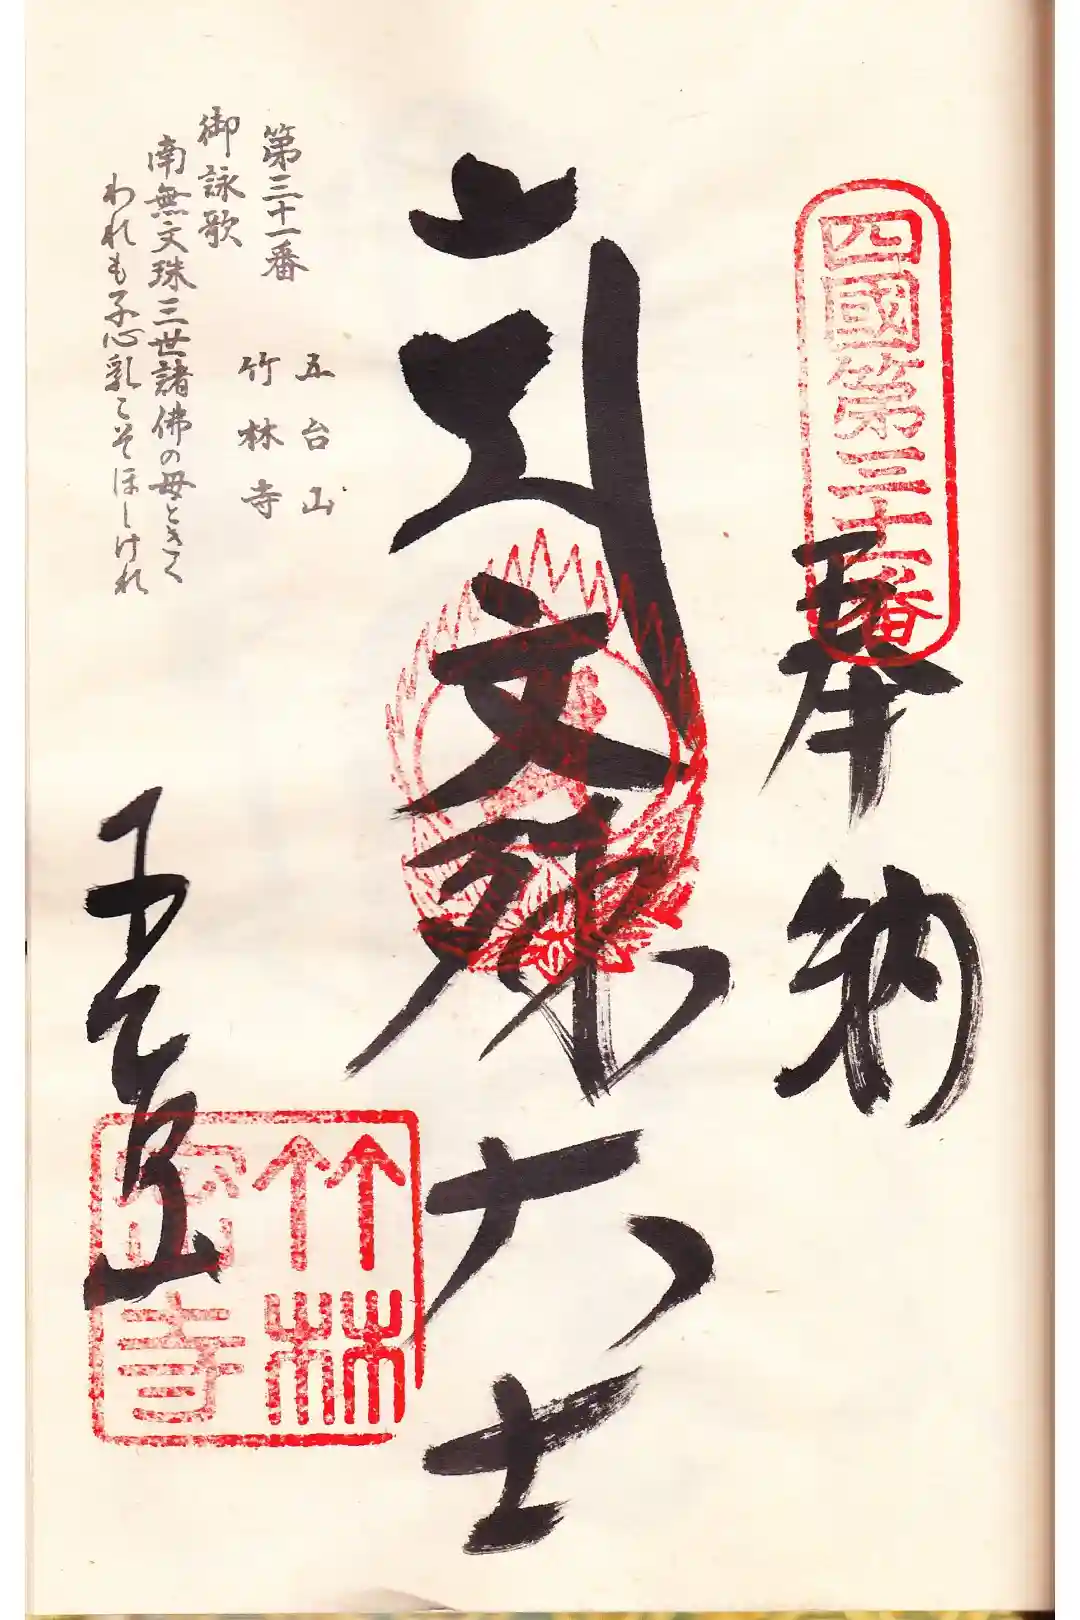 四國第三十一番
奉納
文殊大士
五台山
竹林密寺
第三十一番
五台山
竹林寺
御詠歌
南無文珠三世諸佛の母ときく
われも子心乳こそほしけれ